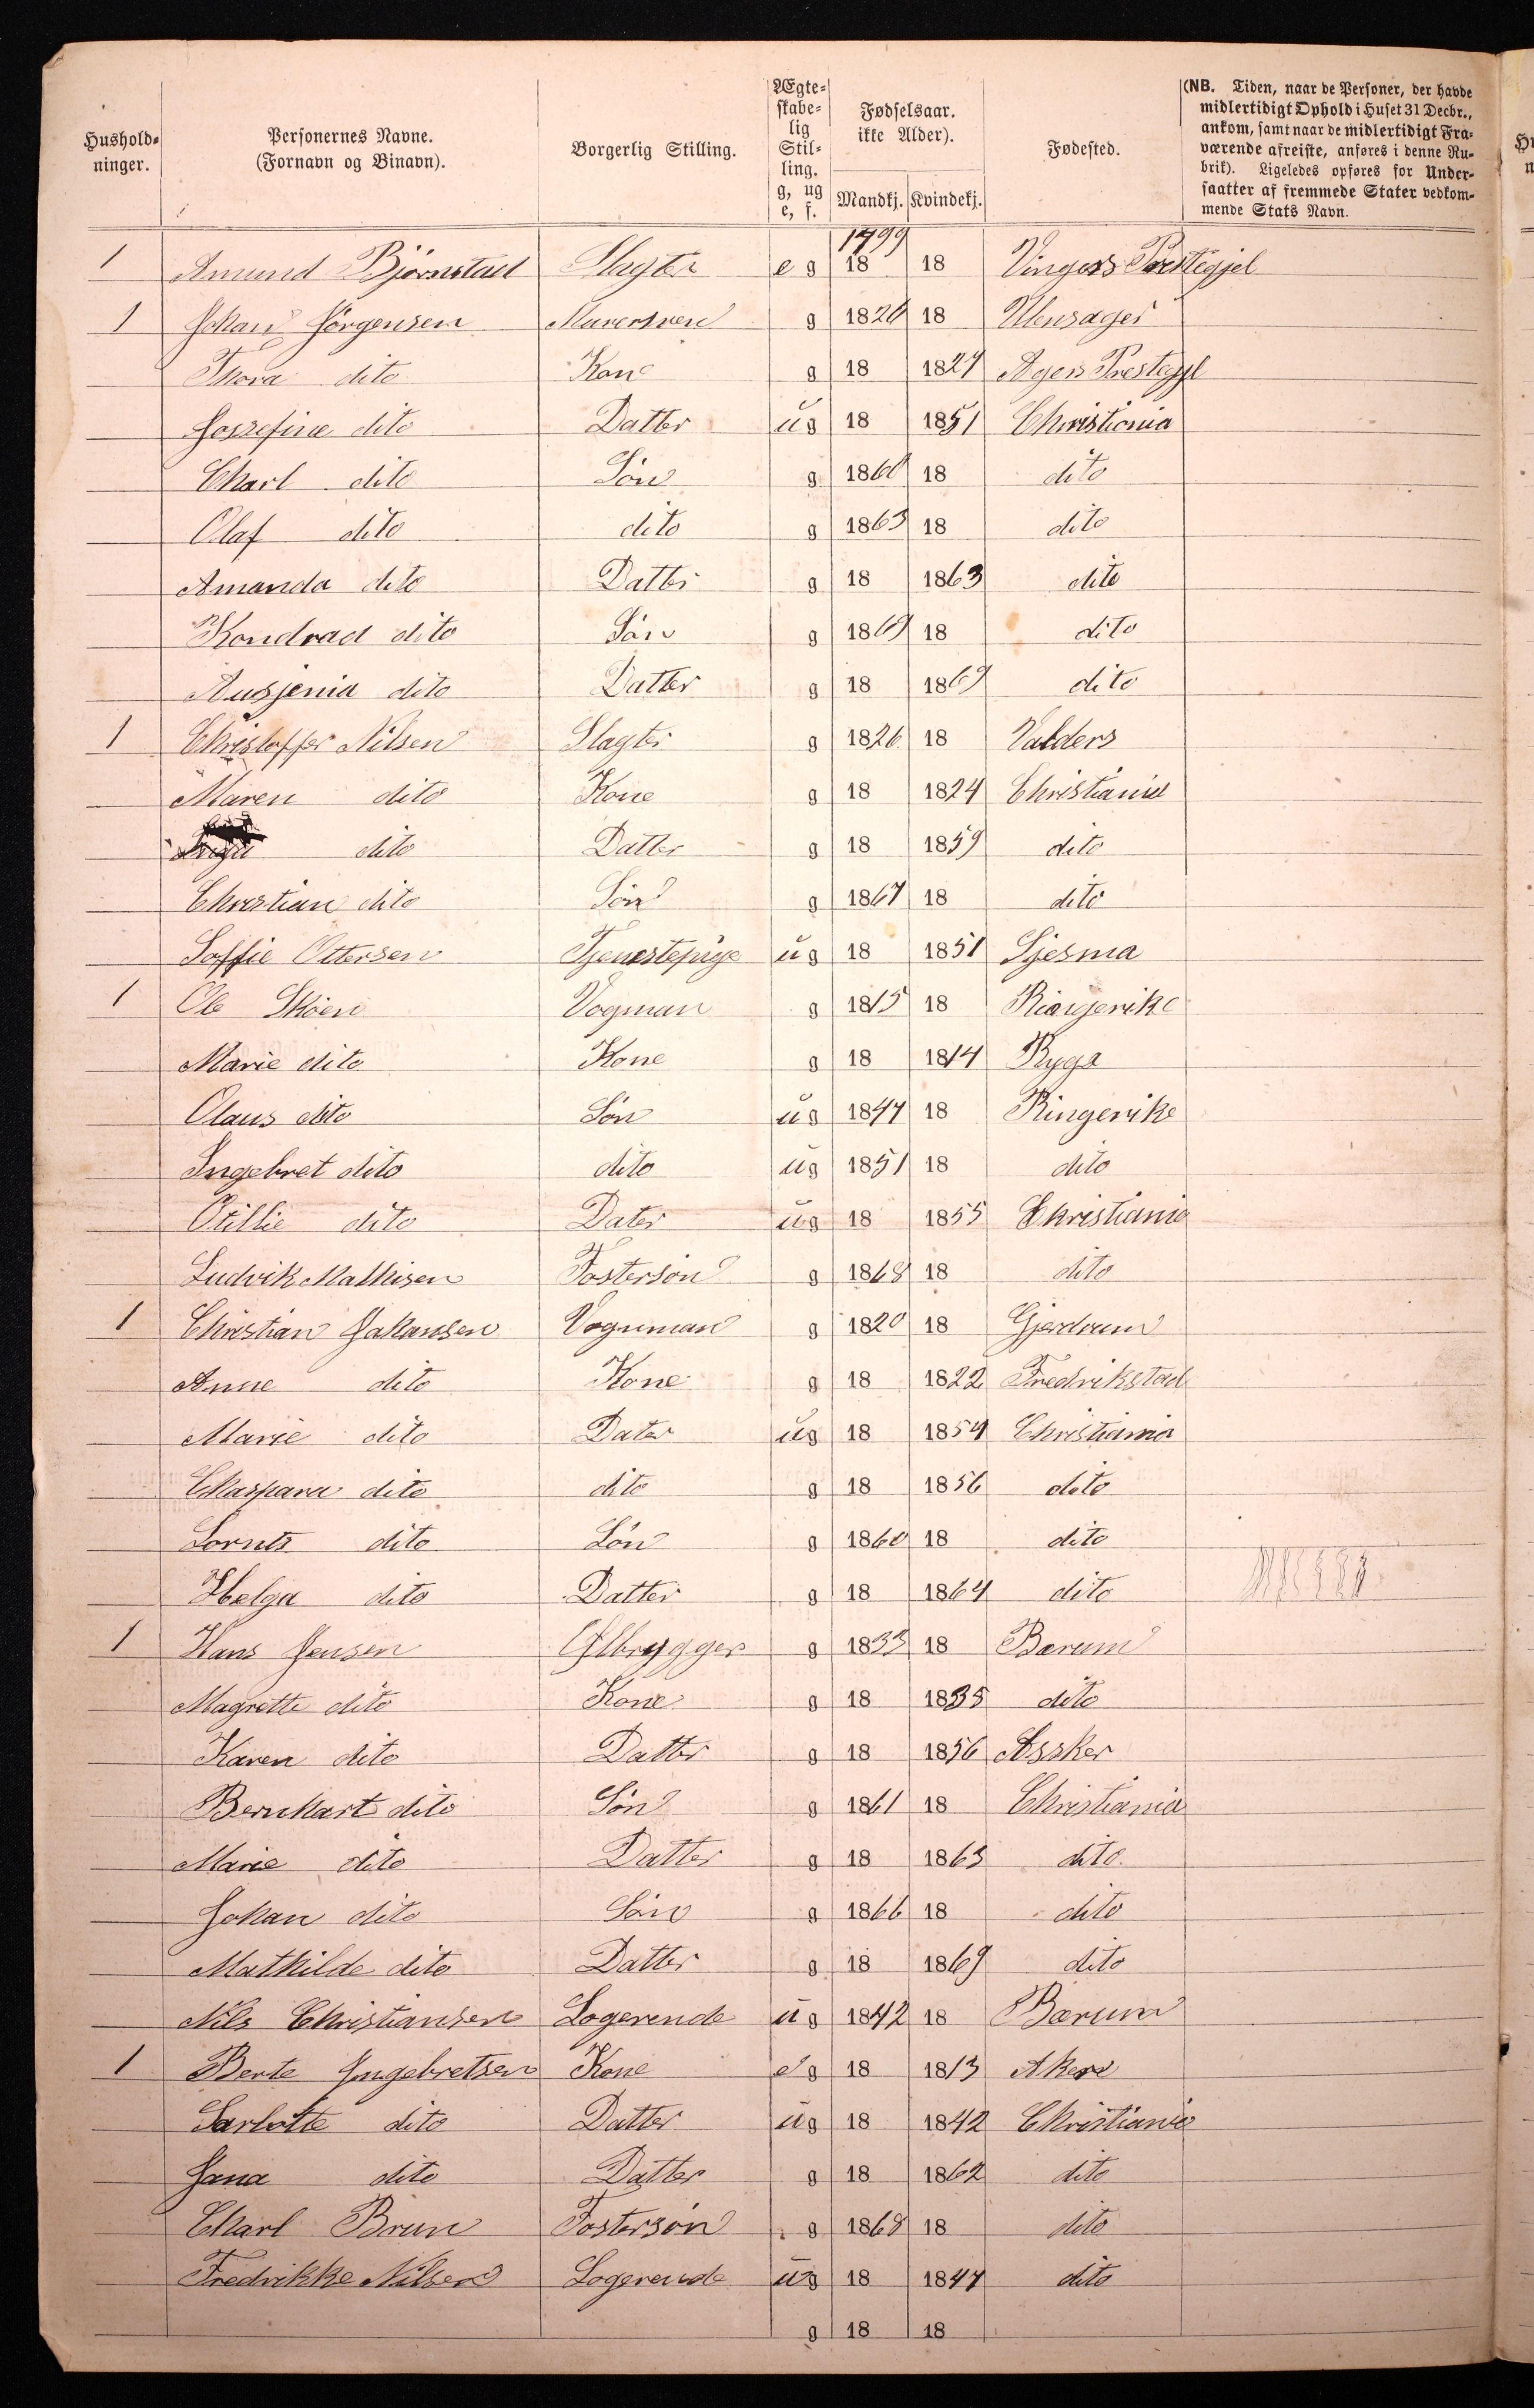 Hushold-
ninger.
Personernes Navne.
(Fornavn og Binavn).
Borgerlig Stilling.
Ægte-
skabe-
lig
Stil-
ling.
g, ug
e, f.
Fødselsaar.
ikke Alder).
Mandkj. Kvindekj.
Fødested.
(NB. Tiden, naar de Personer, der havde
midlertidigt Ophold i Huset 31 Decbr.,
ankom, samt naar de midlertidigt Fra-
værende afreiste, anføres i denne Ru-
brik). Ligeledes opføres for Under-
saatter af fremmede Stater vedkom-
mende Stats Navn.
1 Amund Bjørnstad Slagter e g 1799 18 18 Vingers Prestegjel
1 Johan Jørgensen Murersven g 1826 18 Ulensager
Thora dito Kone g 18 1827 Agers Prestegjl
Jossefine dito Datter u g 18 1851 Christiania
Charl dito Søn g 1860 18 dito
Olaf dito dito g 1863 18 dito
Amanda dito Datter g 18 1863 dito
Kondrad dito Søn g 1869 18 dito
Ausjenia dito Datter g 18 1869 dito
1 Christoffer Nilsen Slagter g 1826 18 Valders
Maren dito Kone g 18 1824 Christiania
dito Datter g 18 1859 dito
Christian dito Søn g 1867 18 dito
Soffie Ottersen Tjenestepige u g 18 1851 Sjesma
1 Ole Skøien Vogman g 1815 18 Ringerike
Marie dito Kone g 18 1814 Ryga
Olaus dito Søn u g 1847 18 Ringerike
Ingebret dito dito u g 1851 18 dito
Otillie dito Dater u g 18 1855 Christiania
Ludvik Mathisen Fostersøn g 1868 18 dito
1 Christian Johansen Vognman g 1820 18 Gjerdrum
Anne dito Kone g 18 1822 Fredrikstad
Marie dito Dater u g 18 1854 Christiania
Chaspara dito dito g 18 1856 dito
Lornts dito Søn g 1860 18 dito
Helga dito Datter g 18 1864 dito
1 Hans Jensen Ølbrygger g 1833 18 Bærum
Magrette dito Kone g 18 1835 dito
Karen dito Datter g 18 1856 Assker
Bernhart dito Søn g 1861 18 Christiania
Marie dito Datter g 18 1863 dito
Johan dito Søn g 1866 18 dito
Mathilde dito Datter g 18 1869 dito
Nils Christiansen Logerende u g 1842 18 Bærum
1 Berte Ingebretsen Kone e g 18 1813 Akers
Sarlotte dito Datter u g 18 1842 Christiania
Jana dito Datter g 18 1862 dito
Charl Brun Fostersøn g 1868 18 dito
Fredrikke Nilsen Logerende u g 18 1847 dito
g 18 18